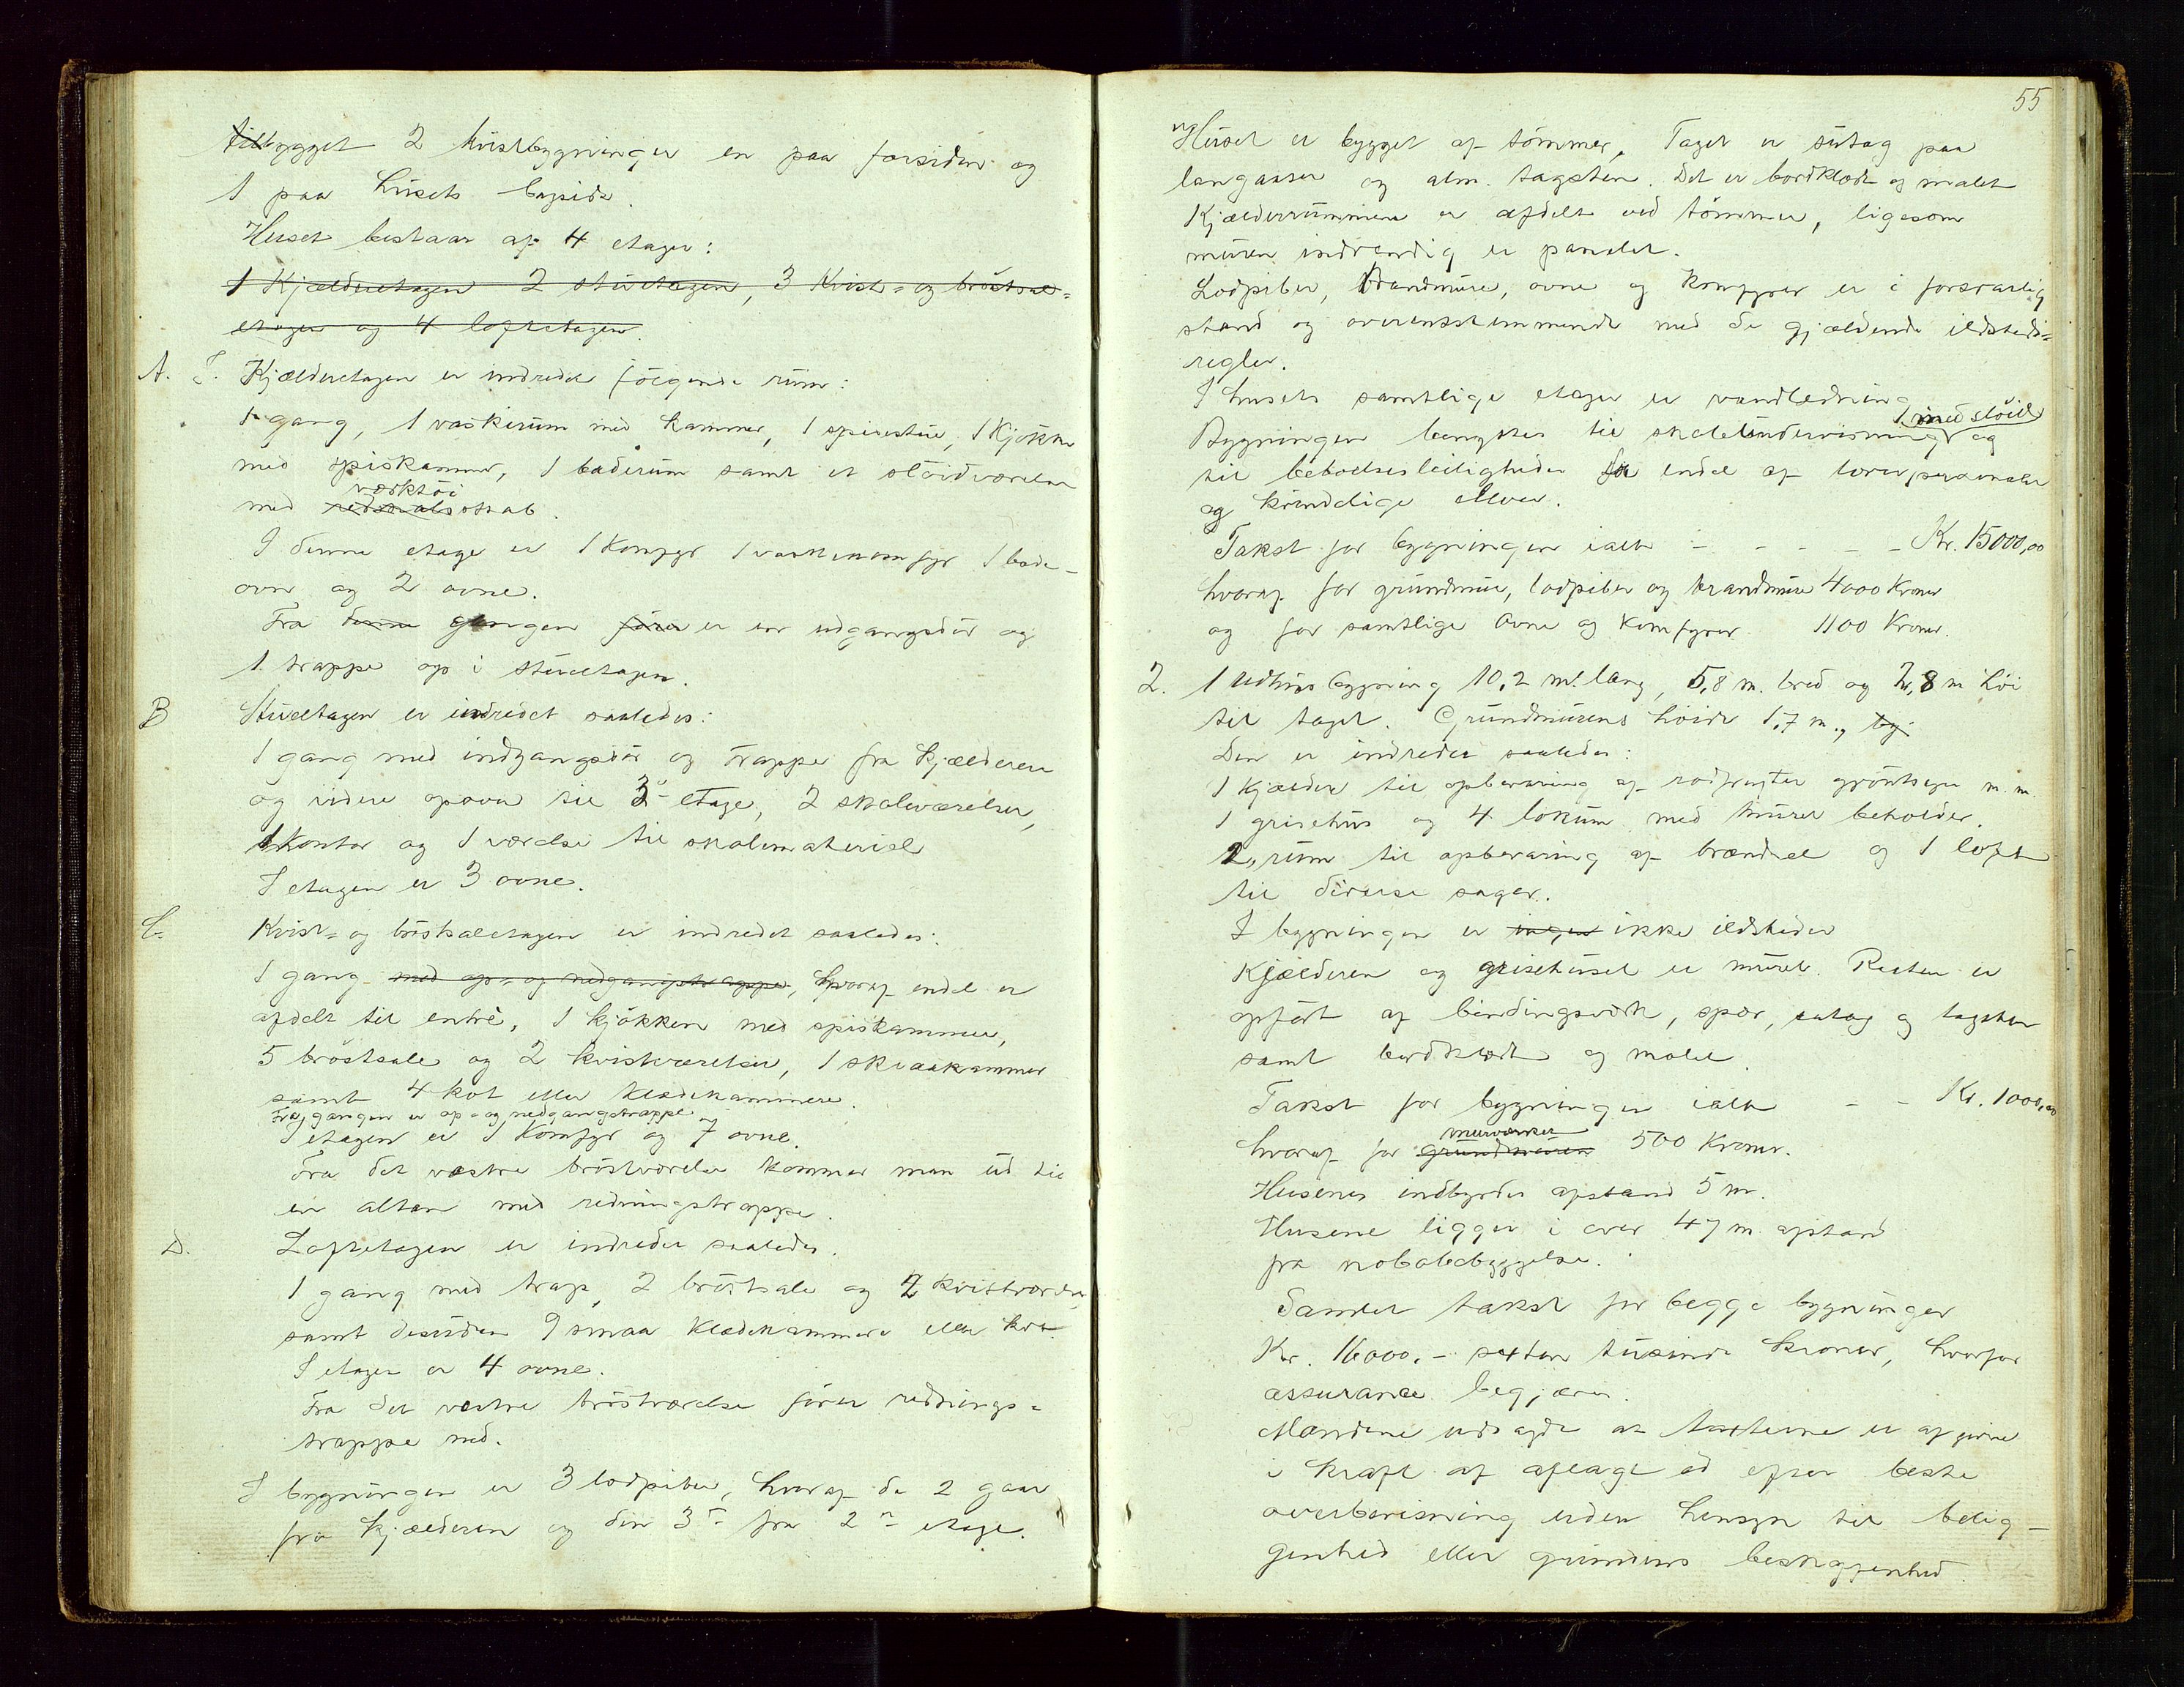 tilbygget 2 kvistbygninger en paa forsiden og
1 paa husets bagside.
Huset bestaar af 4 etager:
1 Kjælderetagen 2 stuetagen, 3 Kvist- og bröstsal-
etagen og 4 loftetagen.
A. I Kjælderetagen er indredet fölgende rum:
1 gang, 1 vaskerum med kammer, 1 spisestue, 1 Kjökken
med spiskammer, 1 baderum samt et slöidværelse
værktöi
med redskabsskab.
I denne etage er 1 Komfyr 1 vaskekomfyr 1 bade-
ovn og 2 ovne.
Fra denne gangen förer er en udgangsdör og
1 trappe op i stueetagen.
B Stuetagen er indredet saaledes:
1 gang med indgangsdör og trappe fra Kjælderen
og videre opover til 3de etage, 2 skoleværelser,
1 Kontor og 1 værelse til skolemateriel
I etagen er 3 ovne.
C. Kvist- og bröstsaletagen er indredet saaledes:
1 gang med op- og nedgangstrappe, hvoraf endel er
afdelt til entrè, 1 kjökken med spiskammer,
5 bröstsale og 2 kvistværelser, 1 skraakammer
samt 4 kot eller klædekammere.
Fra gangen er op- og nedgangstrappe
I etagen er 1 Komfyr og 7 ovne.
Fra det vestre bröstværelse kommer man ud til
en altan med redningstrappe.
D. Loftetagen er indredet saaledes.
1 gang med trap, 2 bröstsale og 2 kvistværelser
samt desuden 9 smaa klædekammere eller kot
I etagen er 4 ovne.
Fra det vestre bröstværelse förer rednings-
trappe ned.
I bygningen er 3 lodpiber, hvoraf de 2 gaar
fra kjælderen og den 3die fra 2den etage.
55
Huset er bygget af tömmer. Taget er sutag paa
langaaser og alm. tagsten. Det er bordklædt og malet
Kjælderrummene er afdelt ved tömmer, ligesom
muren indvendig er panelet.
Lodpiber, brandmure, ovne og komfyrer er i forsvarlig
stand og overensstemmende med de gjældende ildsteds-
regler.
I husets samtlige etager er vandledning
med slöid
Bygningen benyttes til skoleundervisning og
til beboelsesleiligheder for endel af lærerpersonalet
og kvindelige elever.
Takst for bygningen ialt - - - - - Kr. 15000,00
hvoraf for grundmur, lodpiber og brandmure 4000 Kroner
og for samtlige Ovne og Komfyrer 1100 Kroner.
2. 1 Udhusbygning 10,2 mt. lang, 5,8 m. bred og 2,8 m höi
til taget. Grundmurens höide 1,7 m., by
Den er indredet saaledes:
1 Kjælder til opbevaring af rodfrugter gröntsager m. m.
1 grisehus og 4 lokum med muret beholder.
2, rum til opbevaring af brændsel og 1 loft
til diverse sager.
I bygningen er ingen ikke ildsteder
Kjælderen og grisehuset er muret. Resten er
opfört af bindingsverk, spær, sutag og tagsten
samt bordklædt og malet.
Takst for bygningen ialt - - Kr. 1000,00
murværket
hvoraf for grundmuren 500 Kroner.
Husenes indbyrdes afstand 5 m.
Husene ligger i over 47 m. afstand
fra nabobebyggelse.
Samlet takst for begge bygninger
Kr. 16000.- sexten tusinde Kroner, hvorfor
assurance begjæres.
Mændene udsagde at taxterne er afgivne
i kraft af aflagt ed efter beste
overbevisning uden hensyn til belig-
genhed eller grundens beskaffenhed